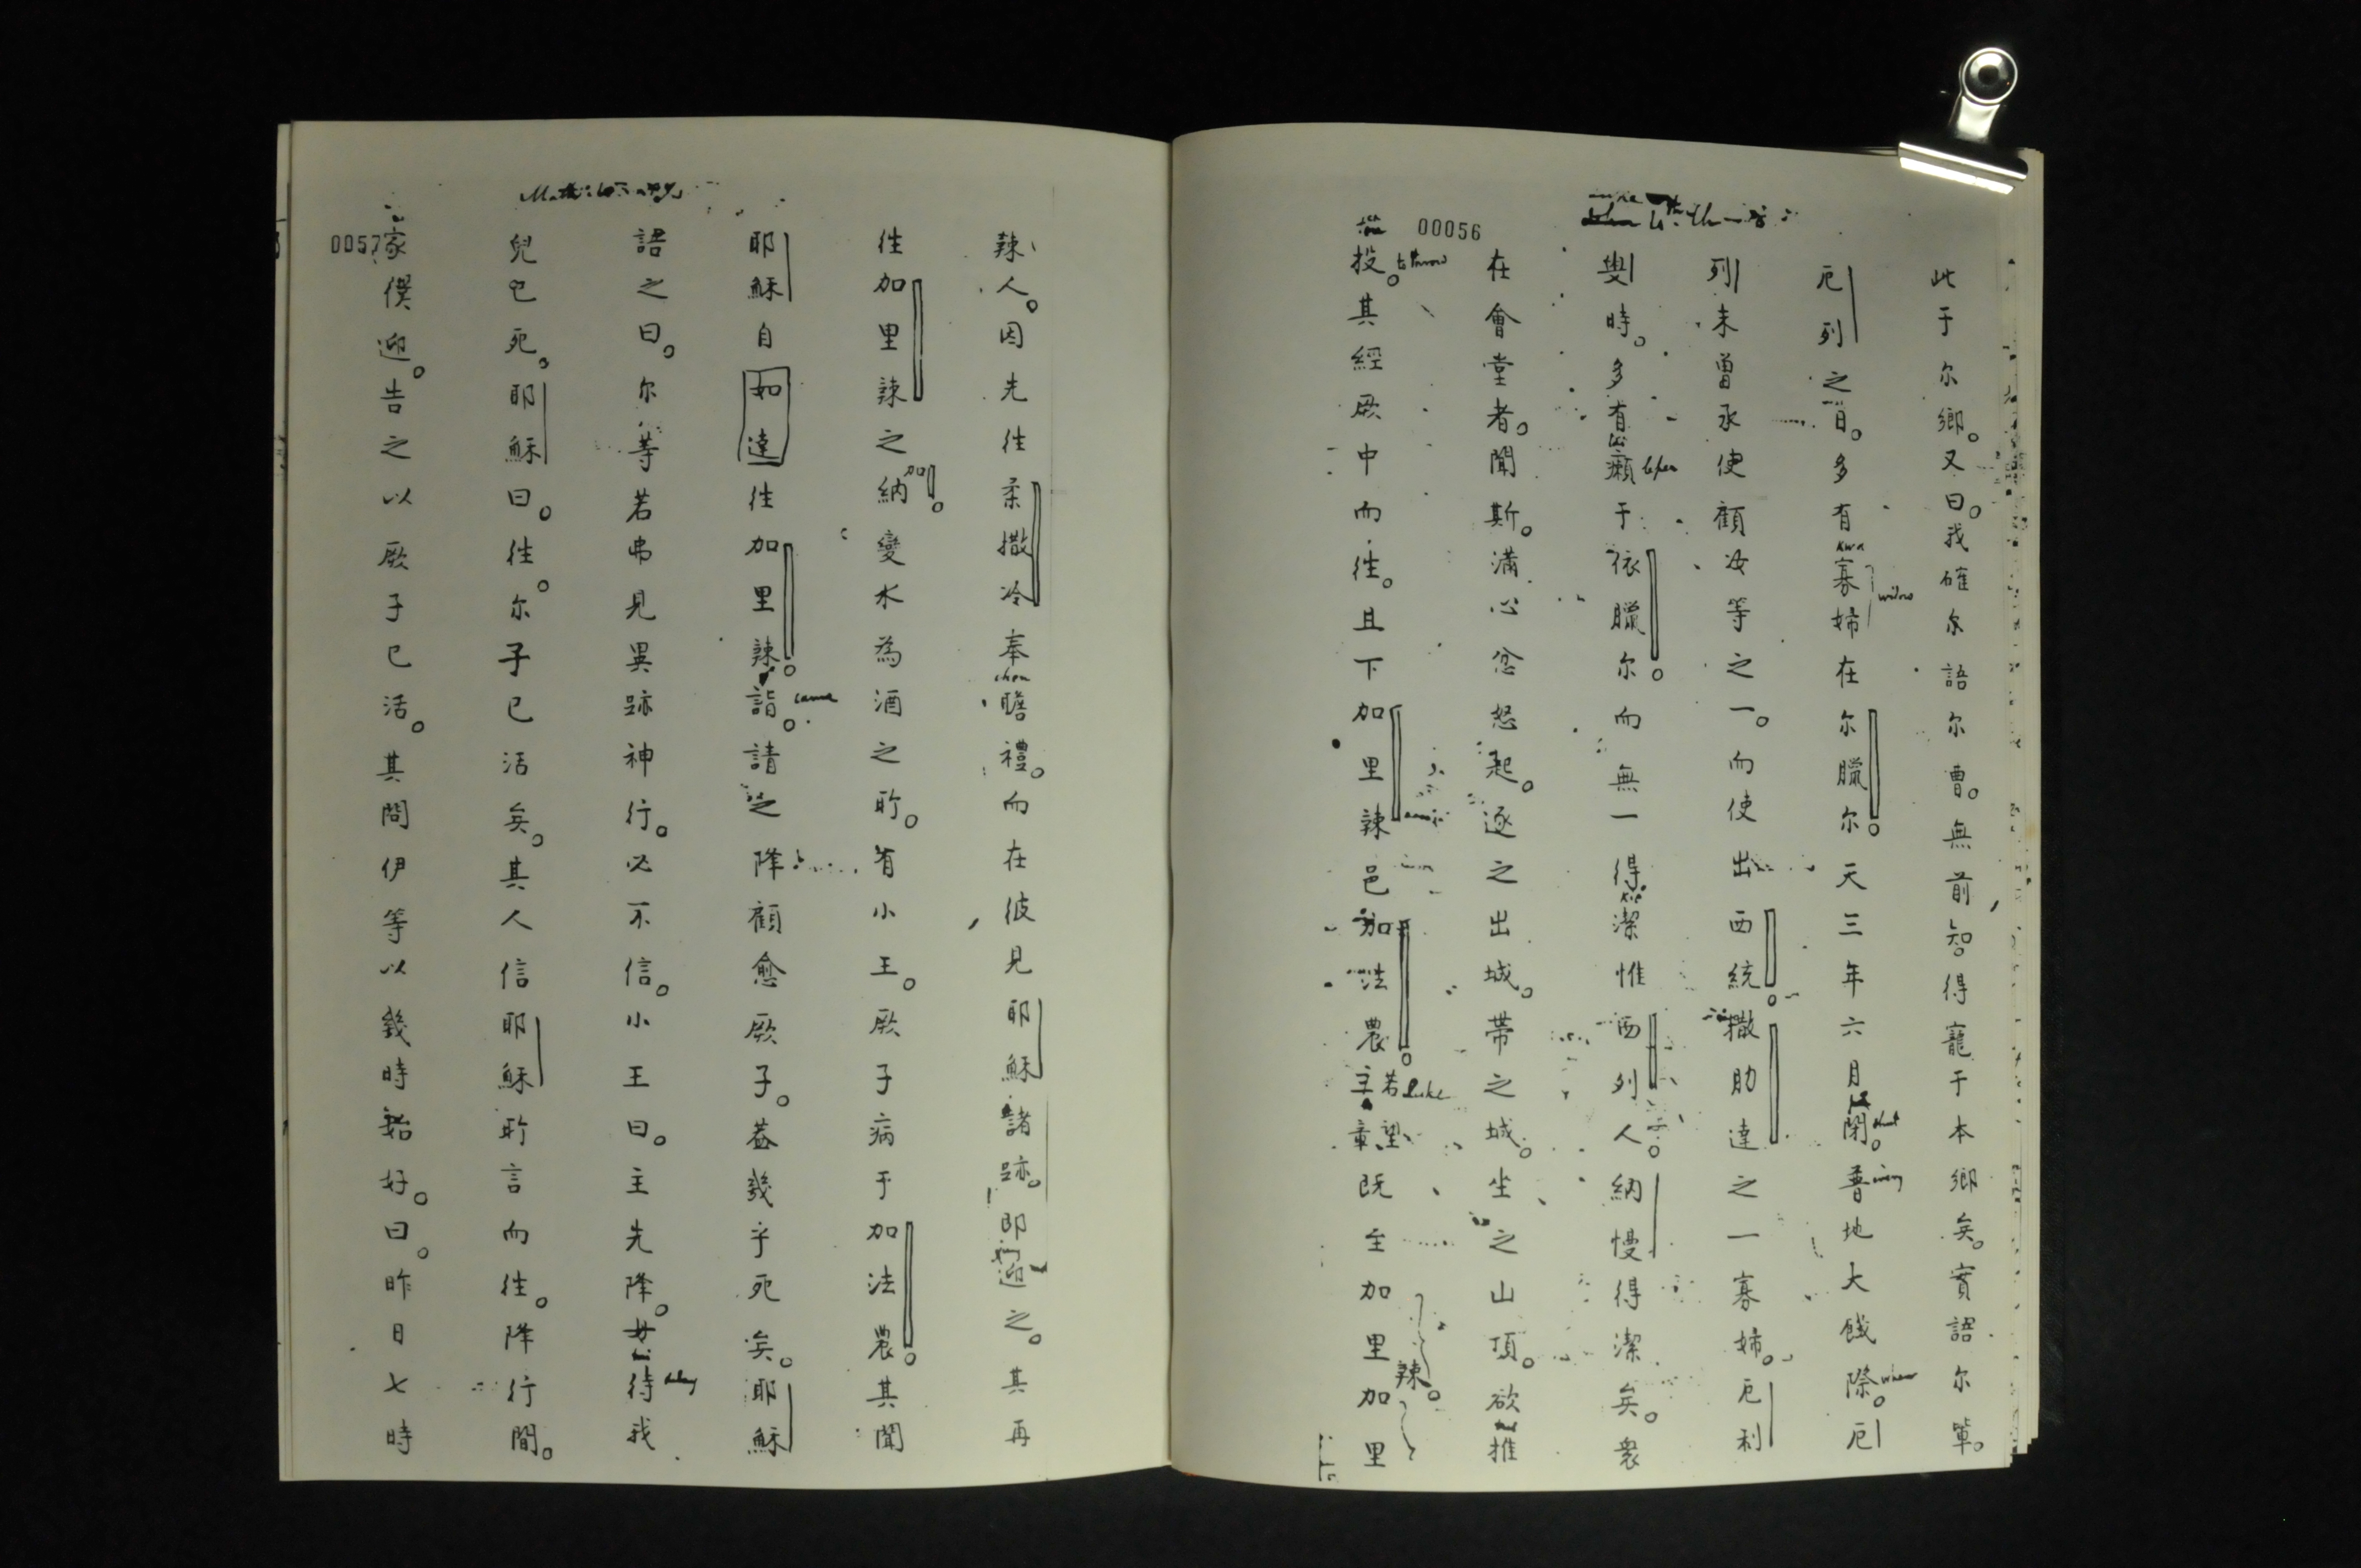 00056
此于尔鄉。又曰。我確尔語尔曹。無前智得寵于本鄉矣。實語尔軰。
厄列之日。多有寡婦在尔臘尔。天三年六月閉。普地大餓際。厄
widow
shut
every
when
列未曾承使顧汝等之一。而使出西統。撒肋達之一寡婦。厄利
叟時。多有癩于依臘尔。而無一得潔惟西列人。納慢得潔矣。衆
leper
在會堂者。聞斯。滿心忿怒起。逐之出城。帶之城。坐之山頂。欲推
投。其經厥中而往。且下加里辣邑加法農。主若章望既至加里加里
to throw
Luke
辣。
0057
辣人。因先往柔撒冷奉瞻禮。而在彼見耶穌諸跡。即迎之。其再
往加里辣之納變水為酒之所。有小王。厥子病于加法農。其聞
加
耶穌自如達往加里辣。詣。請之降顧愈厥子。葢幾乎死矣。耶穌
came
語之曰。尔等若弗見異跡神行。必不信。小王曰。主先降。待我
兒已死。耶穌曰。往。尔子已活矣。其人信耶穌所言而往。降行間。
家僕迎。告之以厥子已活。其問伊等以幾時始好。曰。昨日七時